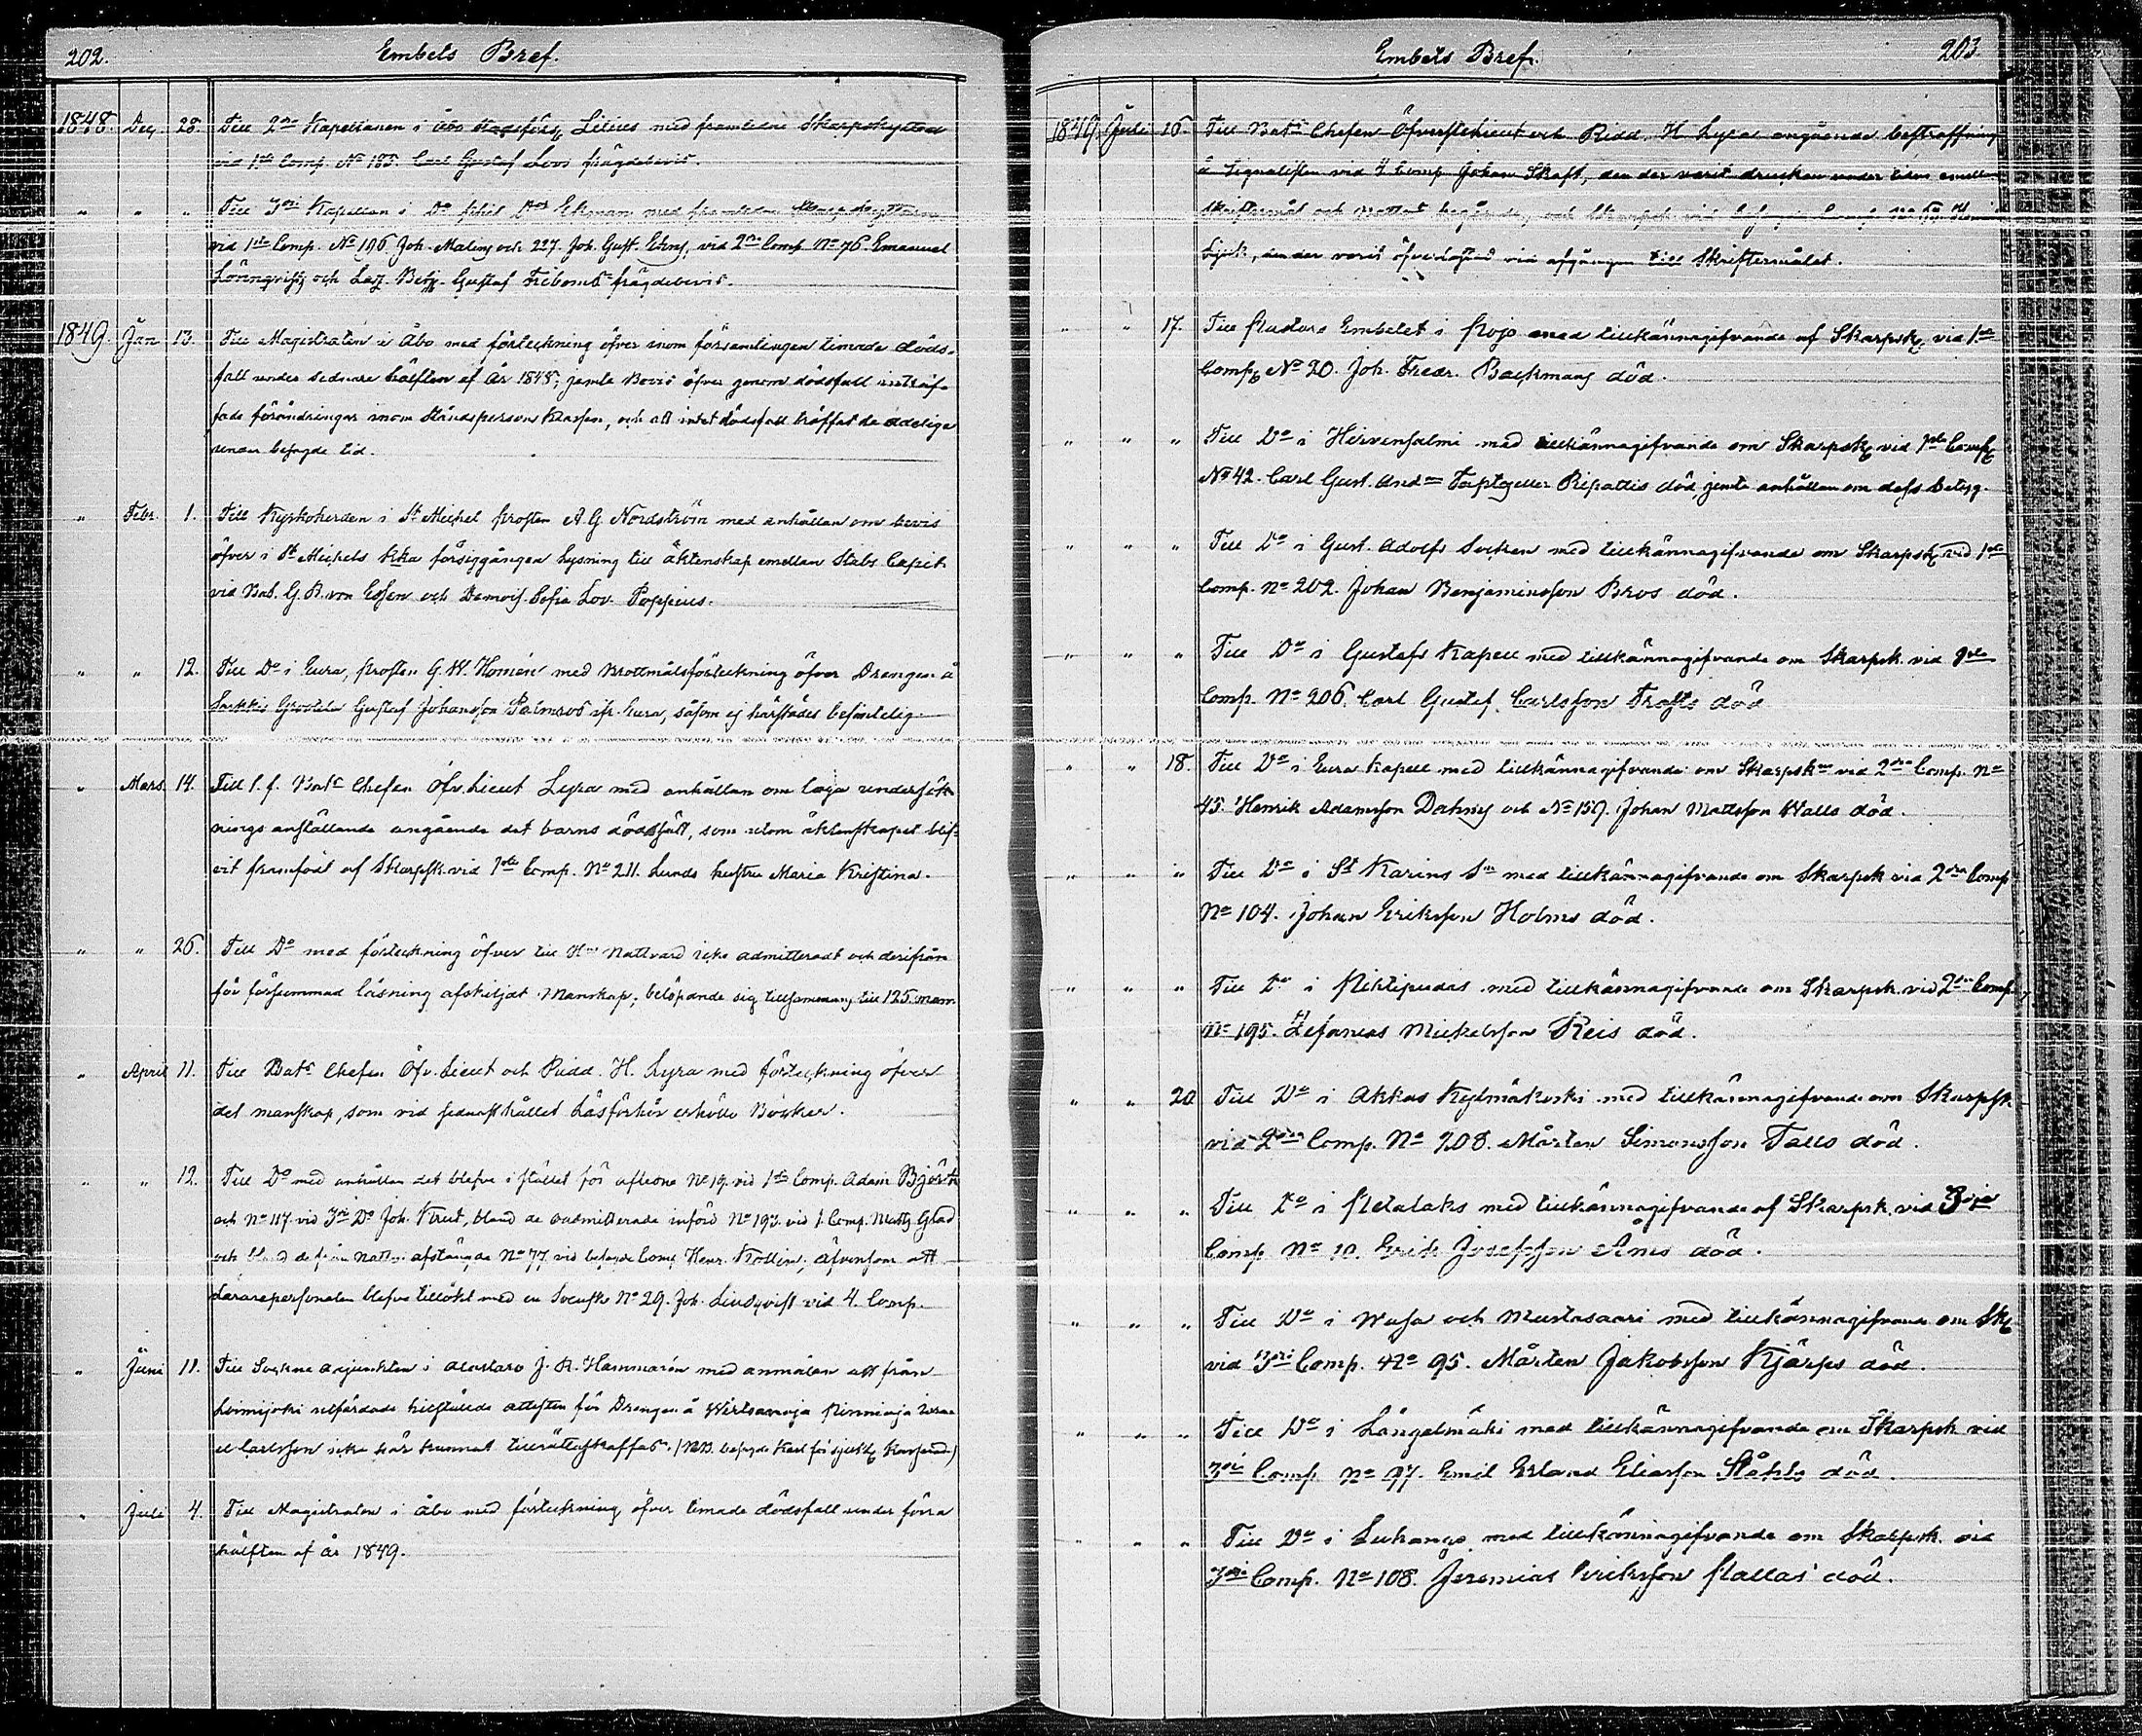 202. Embets Bref.
1848. Dec. 28. Till 2dra Kapellanen i Åbo Lilius med framledne Skarpskytten
vid 1sta Comp. No 185. Carl Gustaf Loos frägdebevis.
" " " Till 3dje Kapellan i Do Ekman med framledne Skarpskyttarne
vid 1sta Comp. No 106 Joh. Malins och 227. Joh. Gust. vid 2dra Comp. No 76. Emanuel
Lönnqvists och Gustaf Friboms frägdebevis.
1849. Jan 13. Till Magistraten i Åbo med förteckning öfver inom församlingen timade döds-
fall under sednare hälften af År 1848; jemte Bevis öfver genom dödsfall inträf-
fade förändringar inom Ståndspersons Klassen, och att intet dödsfall träffat de adelige
under besagde tid.
" Febr. 1. Till Kyrkoherden i St Michel Prosten A. G. Nordström med anhållan om bevis
öfver i St Michels kka försiggången lysning till äktenskap emellan Stabs Capit.
vid Bat. G. R. von Essen och Demois. Sofia Lov. Poppius.
" " 12. Till Do i Eura, Prosten G. W. Homén med Brottmålsförteckning öfver Drengen å
Gustaf Johansson Palmroos ifr. Eura, såsom ej härstädes befintelig.
" Mars. 14. Till t. f. Bats Chefen Öfv. Lieut Lyra med anhållan om laga undersök-
nings anställande angående det barns dödssätt, som utom äktenskapet blif-
vit framfödt af Skarpsk. vid 1sta Comp. No 211. Lunds hustru Maria Kristina.
" " 26. Till Do med förteckning öfver till Hns Nattvard icke admitteradt och derifrån
för försummad läsning afskiljdt Manskap, belöpande sig tillsammans till 125 man.
" April 11. Till Bats Chefen Öfv. Lieut och Ridd. H. Lyra med förteckning öfver
det manskap, som vid sednast hållet Läsförhör erhöllo Böcker.
" " 12. Till Do med anhållan det blefve i stället för aflidne No 19. vid 1sta Comp. Adam Björk
och No 117. vid 3dje Do Joh. Krut, bland de oadmitterade införd No 193. vid 1. Comp. Matts Glad
och bland de från Nattv. afstängde No 77. vid besagde Comp Henr. Kollin, äfvensom att
Lärarepersonalen blefve tillökt med en Svensk No 29. Joh. Lindqvist vid 4. Comp.
" Juni 11. Till Sockne adjunkten i Alastaro J. R. Hammarén med anmälan att från
Loimijoki utfärdade attesten för Drengen å Wirtsanoja
el Carlsson icke här kunnat tillrättaskaffas. (NB. besagde Karl
" Juli 4. Till Magistraten i Åbo med förteckning öfver timade dödsfall under förra
hälften af år 1849.
Embets Bref. 203.
1849. Juli 16. Till Bats Chefen Öfverstelieut och Ridd. H. Lyra angående bestraffning
å Signalisten vid 4 Comp Johan Skaft, den der varit drucken under tiden emellan
Skriftermål och Nattvards begående, och Skarpsk. vid
den der varit öfverlastad vid afgången till Skriftermålet.
" " 17. Till Pastors Embetet i Pojo med tillkännagifvande af Skarpsk. vid 1sta
Comp. No 20. Joh. Fredr. Backmans död.
" " " Till Do i Hirvensalmi med tillkännagifvande om Skarpsk. vid 1sta Comp.
No 42. Carl Gust. And:son Ripattis död jemte anhållan om dess betyg.
" " " Till Do i Gust. Adolfs Socken med tillkännagifvande om Skarpsk. vid 1sta
Comp. No 202. Johan Benjaminsson Bros död.
" " " Till Do i Gustafs Kapell med tillkännagifvande om Skarpsk. vid 1sta
Comp. No 206. Carl Gustaf Carlsson Trofts död.
" " 18. Till Do i Eura Kapell med tillkännagifvande om Skarpsk. vid 2dra Comp. No
45. Henrik Adamsson Dahns och No 157. Johan Mattsson Walls död.
" " " Till Do i St Karins Sn med tillkännagifvande om Skarpsk. vid 2dra Comp
No 104. Johan Eriksson Holms död.
" " " Till Do i Pihtipudas med tillkännagifvande om Skarpsk. vid 2dra Comp.
No 195. Zefanias Mickelsson Reis död.
" " 20 Till Do i Akkas Kylmäkoski med tillkännagifvande om Skarpsk.
vid 2dra Comp. No 208. Mårten Simonsson Talls död.
" " " Till Do i Petalaks med tillkännagifvande af Skarpsk. vid 3dje
Comp. No 10. Erik Josefsson Åms död.
" " " Till Do i Wasa och Mustasaari med tillkännagifvande om Sk.
vid 3dje Comp. No 95. Mårten Jakobsson Kjärps död.
" " " Till Do i Längelmäki med tillkännagifvande om Skarpsk. vid
3dje Comp. No 97. Emil Erland Eliasson Ståhls död.
" " " Till Do i Luhango med tillkännagifvande om Skarpsk. vid
3dje Comp. No 108. Jeremias Eriksson Pallas död.